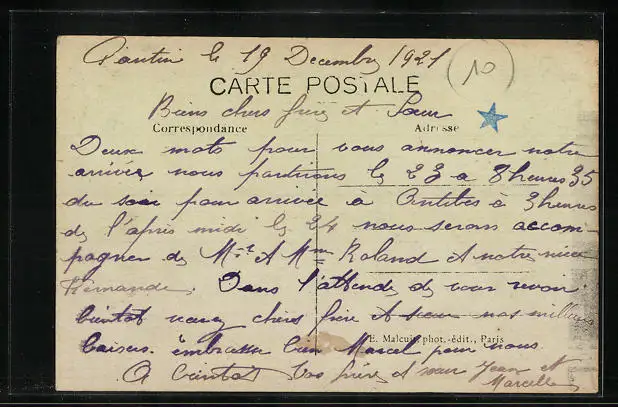 Pantin le 19 Decembre 1921
10
CARTE POSTALE
Biens chers frère et Sœur
Correspondance
Adresse
Deux mots pour vous annoncer notre
arrivée nous partirons le 23 a 8 heures 35
du soir pour arrivée à Antibes a 3 heures
de l'après midi le 24 nous serons accom-
pagner de Mr et Mme Roland et notre niece
Fernande. Dans l'attende de vous revoir
bientot recevez chers frère et sœur nos milleurs
E. Malcuit, phot.-édit., Paris
baisers. embrasse bien Marcel pour nous.
A bientot Vos frère et sœur Jean et
Marcelle